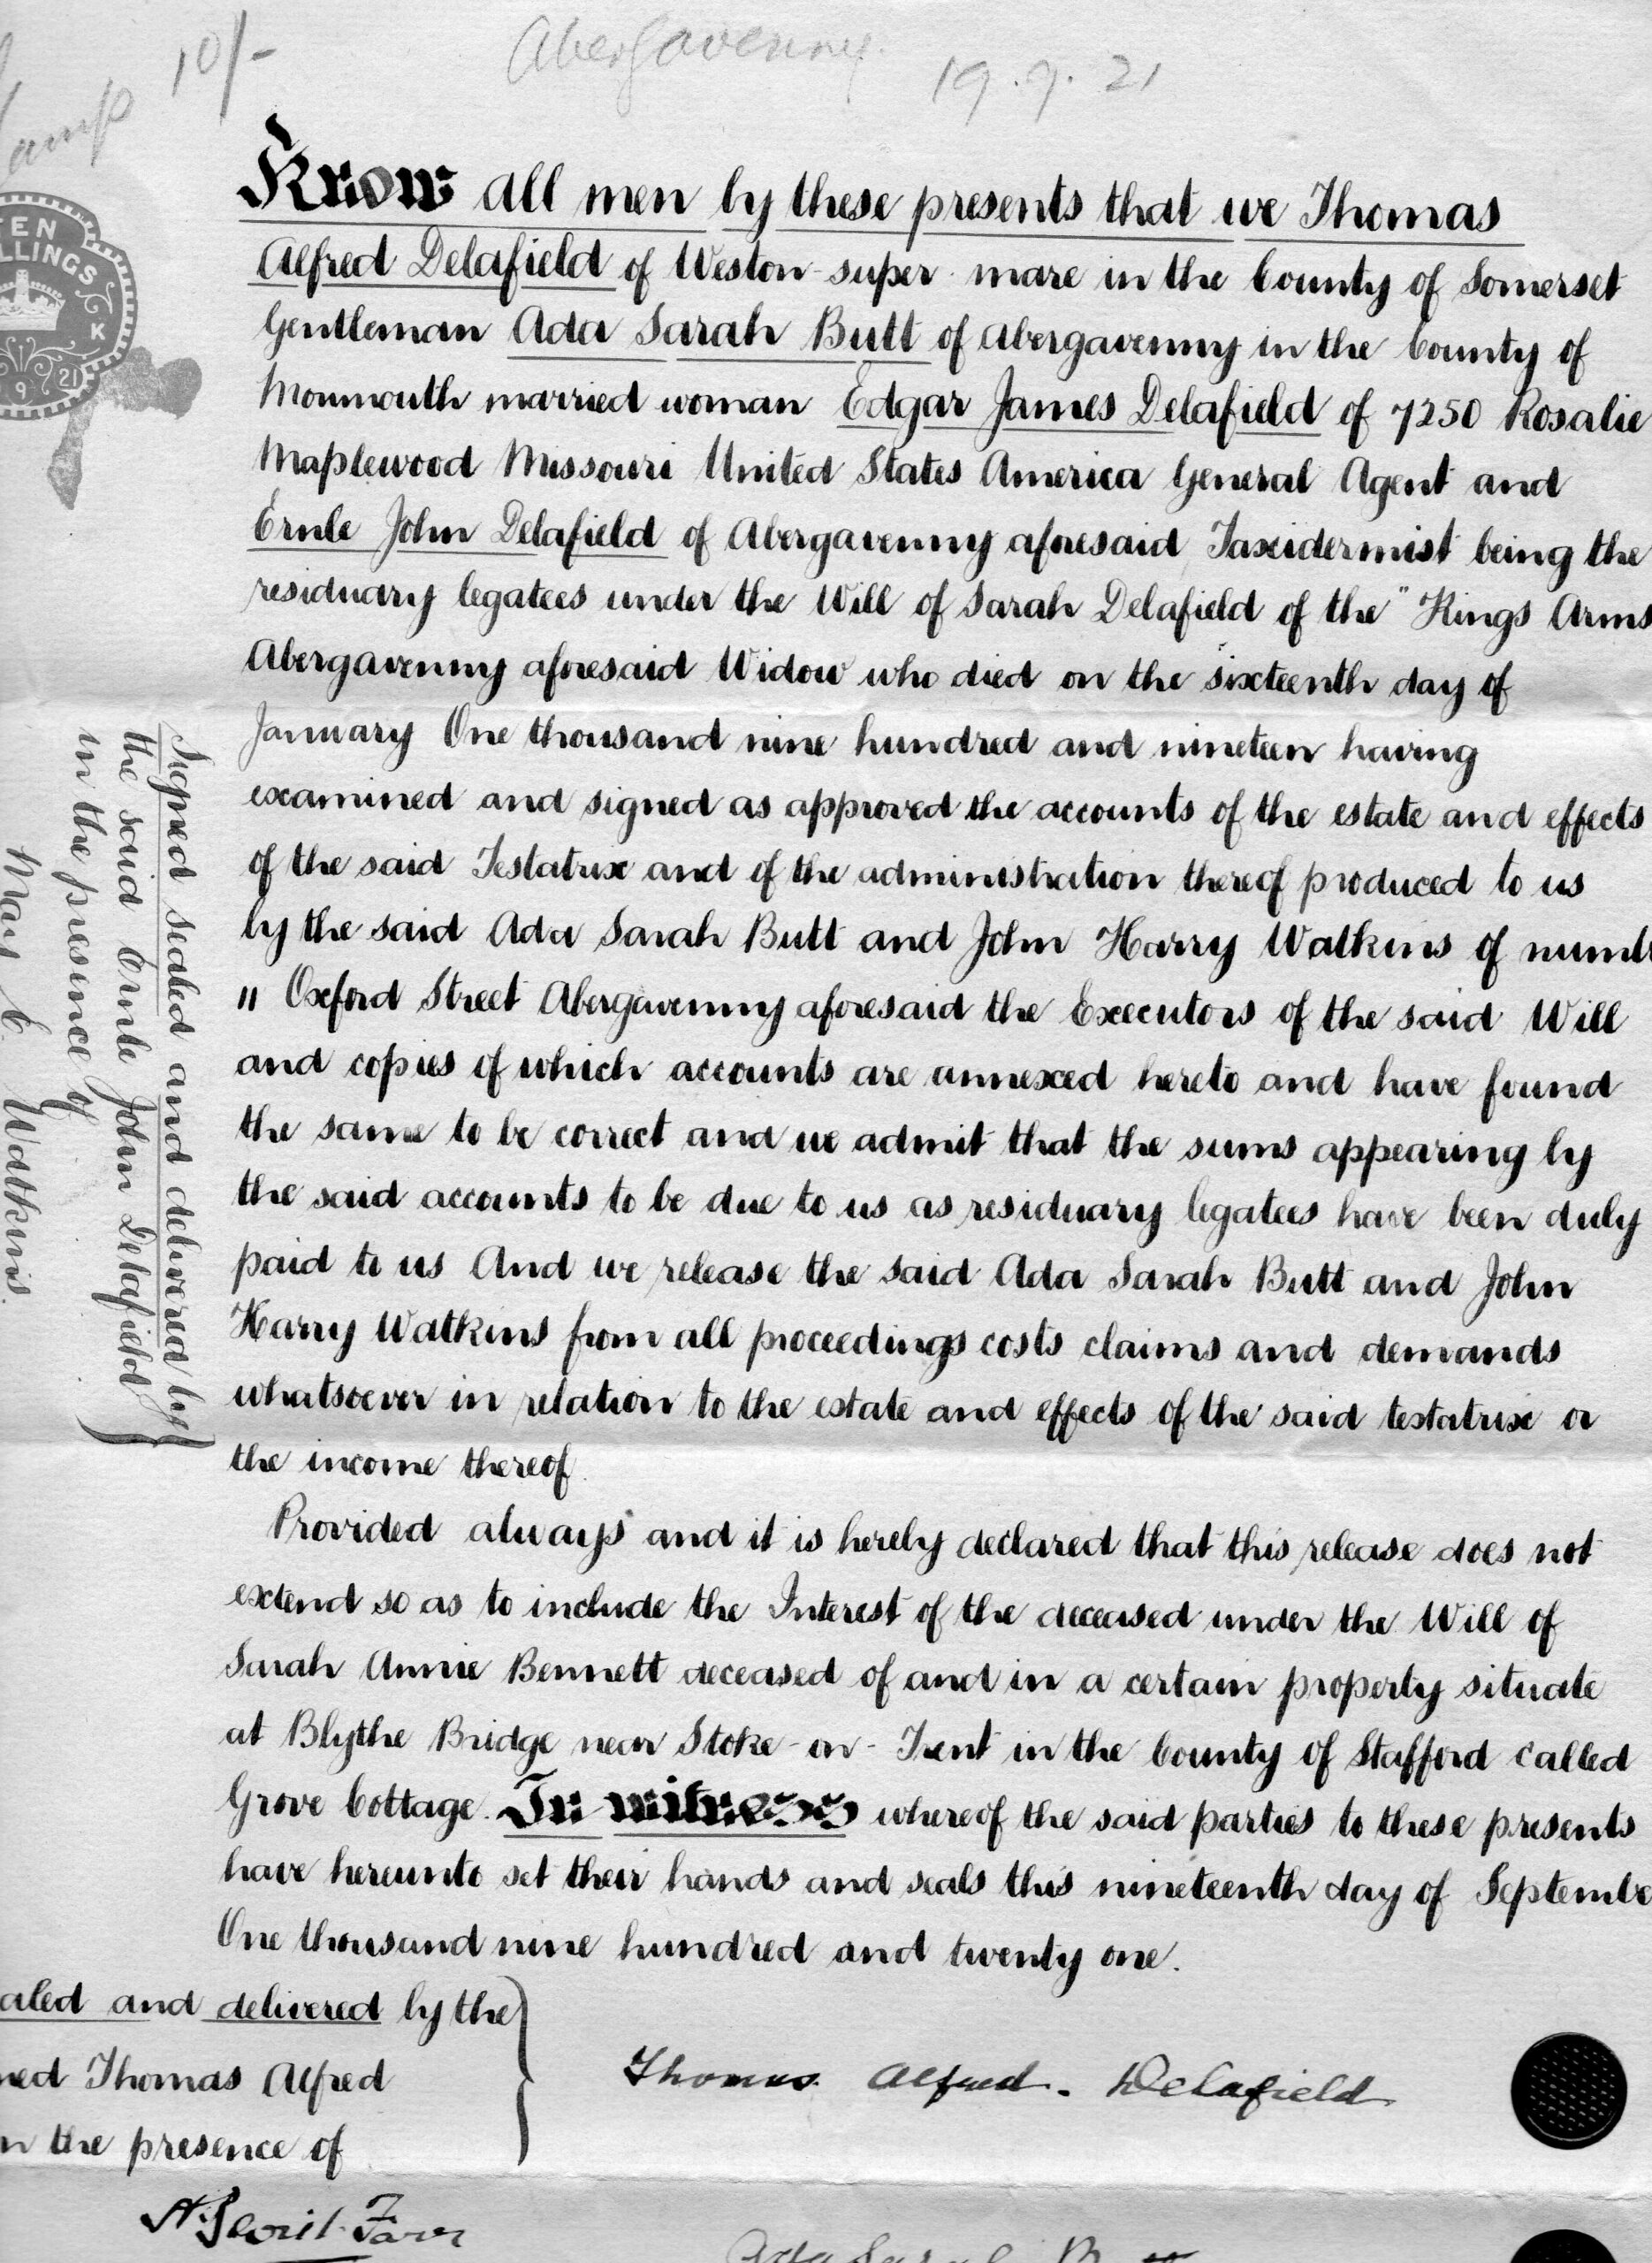 10/-
Abergavenny.
19.9.21
amp
TEN
LLINGS
K
9 21
Know all men by these presents that we Thomas
Alfred Delafield of Weston-super-mare in the County of Somerset
Gentleman Ada Sarah Butt of Abergavenny in the County of
Monmouth married woman Edgar James Delafield of 7250 Rosalie
Maplewood Missouri United States America General Agent and
Ernle John Delafield of Abergavenny aforesaid Taxidermist being the
residuary legatees under the Will of Sarah Delafield of the "Kings Arms
Abergavenny aforesaid Widow who died on the sixteenth day of
January One thousand nine hundred and nineteen having
examined and signed as approved the accounts of the estate and effects
of the said Testatrix and of the administration thereof produced to us
by the said Ada Sarah Butt and John Harry Watkins of numb
11 Oxford Street Abergavenny aforesaid the Executors of the said Will
and copies of which accounts are annexed hereto and have found
the same to be correct and we admit that the sums appearing by
the said accounts to be due to us as residuary legatees have been duly
paid to us And we release the said Ada Sarah Butt and John
Harry Watkins from all proceedings costs claims and demands
whatsoever in relation to the estate and effects of the said testatrix or
the income thereof.
Provided always and it is hereby declared that this release does not
extend so as to include the Interest of the deceased under the Will of
Sarah Annie Bennett deceased of and in a certain property situate
at Blythe Bridge near Stoke-on-Trent in the County of Stafford called
Grove Cottage. In witness whereof the said parties to these presents
have hereunto set their hands and seals this nineteenth day of Septembe
One thousand nine hundred and twenty one.
Signed sealed and delivered by
the said Ernle John Delafield
in the presence of
May C. Watkins.
aled and delivered by the
ned Thomas Alfred
n the presence of
Thomas Alfred. Delafield
Ada Sarah B